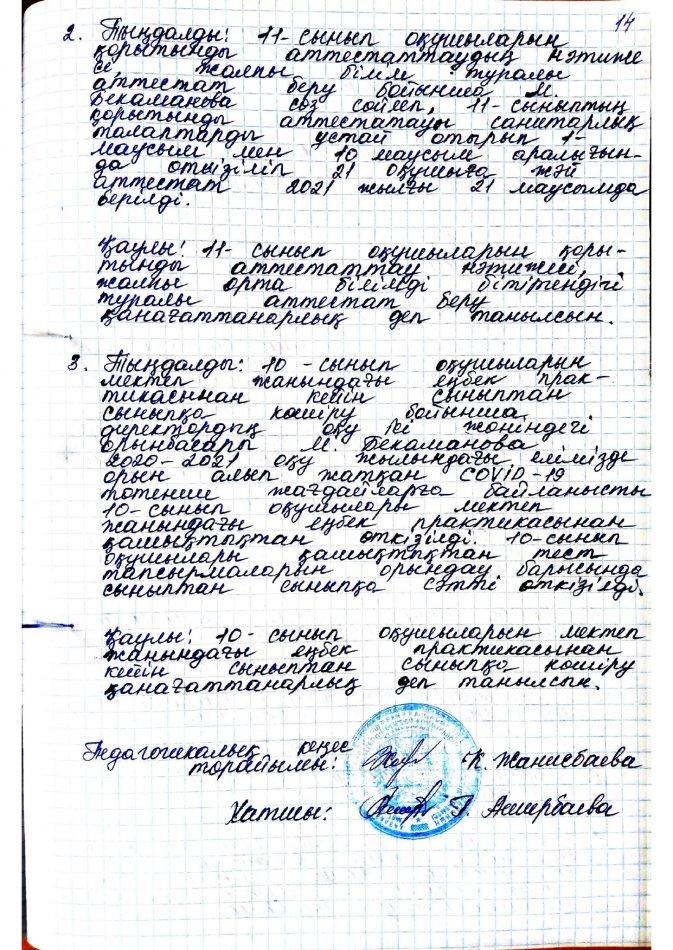 14
2. Тыңдалды: 11-сынып оқушыларын
қорытынды аттестаттаудың нәтиже
сі, жалпы білім туралы
аттестат беру бойынша М.
Бекаманова сөз сөйлеп, 11-сыныптың
қорытынды аттестатауы санитарлық
талаптарды ұстай отырып 1-
маусым мен 10 маусым аралығын-
да өткізіліп 21 оқушыға жәй
аттестат 2021 жылғы 21 маусымда
берілді.
Қаулы: 11-сынып оқушыларын қоры-
тынды аттестаттау нәтижесі,
жалпы орта білімді бітіргендігі
туралы аттестат беру
қанағаттанарлық деп танылсын.
3. Тыңдалды: 10-сынып оқушыларын
мектеп жанындағы еңбек прак-
тикасынан кейін сыныптан
сыныпқа көшіру бойынша
директордың оқу ісі жөніндегі
орынбасары М. Бекаманова
2020-2021 оқу жылындағы елімізде
орын алып жатқан COVID-19
төтенше жағдайларға байланысты
10-сынып оқушылары мектеп
жанындағы еңбек практикасынан
қашықтықтан өткізілді. 10-сынып
оқушылары қашықтықтан тест
тапсырмаларын орындау барысында
сыныптан сыныпқа сәтті өткізілді.
Қаулы: 10-сынып оқушыларын мектеп
жанындағы еңбек практикасынан
кейін сыныптан сыныпқа көшіру
қанағаттанарлық деп танылсын.
Педагогикалық кеңес
төрайымы: К. Жанисбаева
Хатшы: Г. Аширбаева